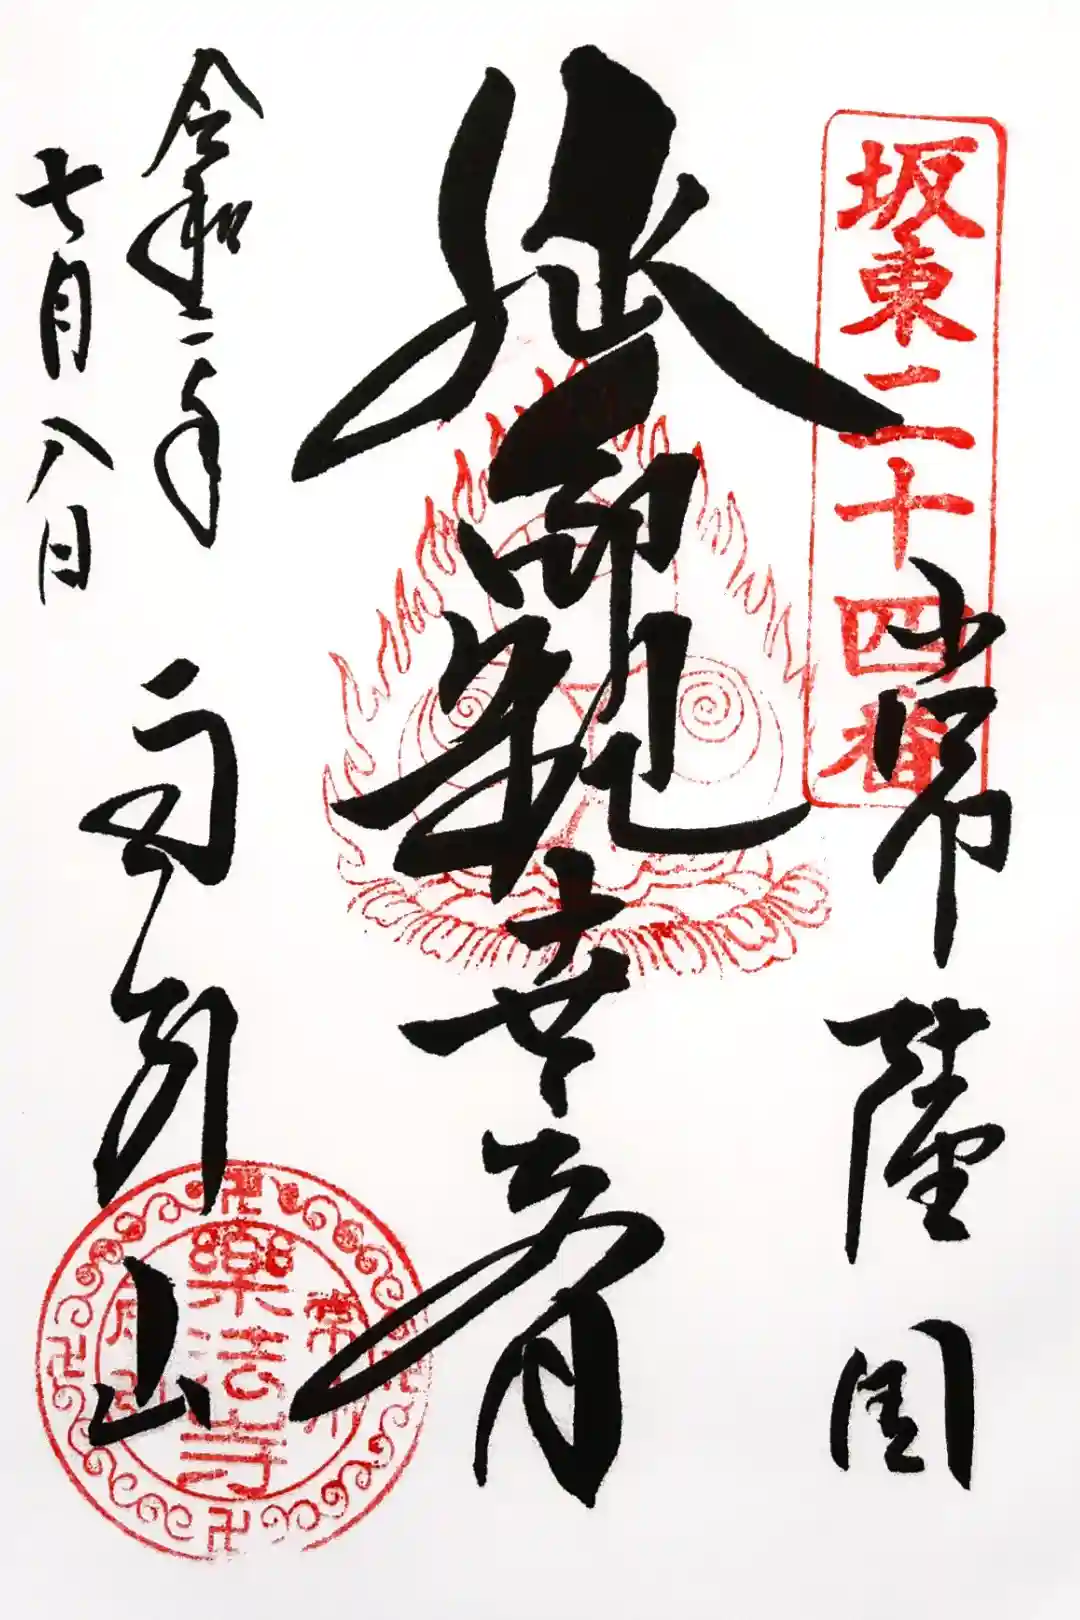 坂東二十四番
常陸國
延命観世音
雨引山
令和二年
七月八日
樂法寺